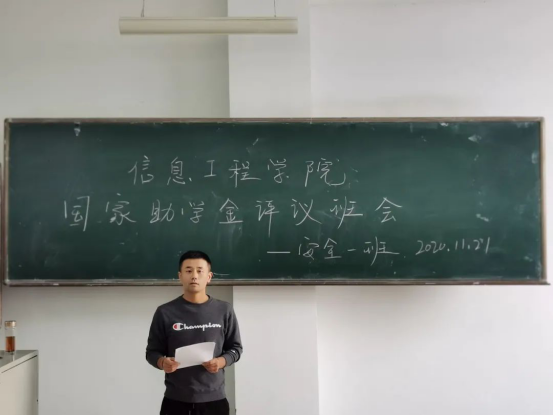 信息工程学院
国家助学金评议班会
——安全一班 2020.11.27
Champion